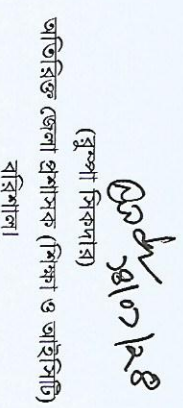 (রুম্পা সিকদার)
অতিরিক্ত জেলা প্রশাসক (শিক্ষা ও আইসিটি)
বরিশাল।